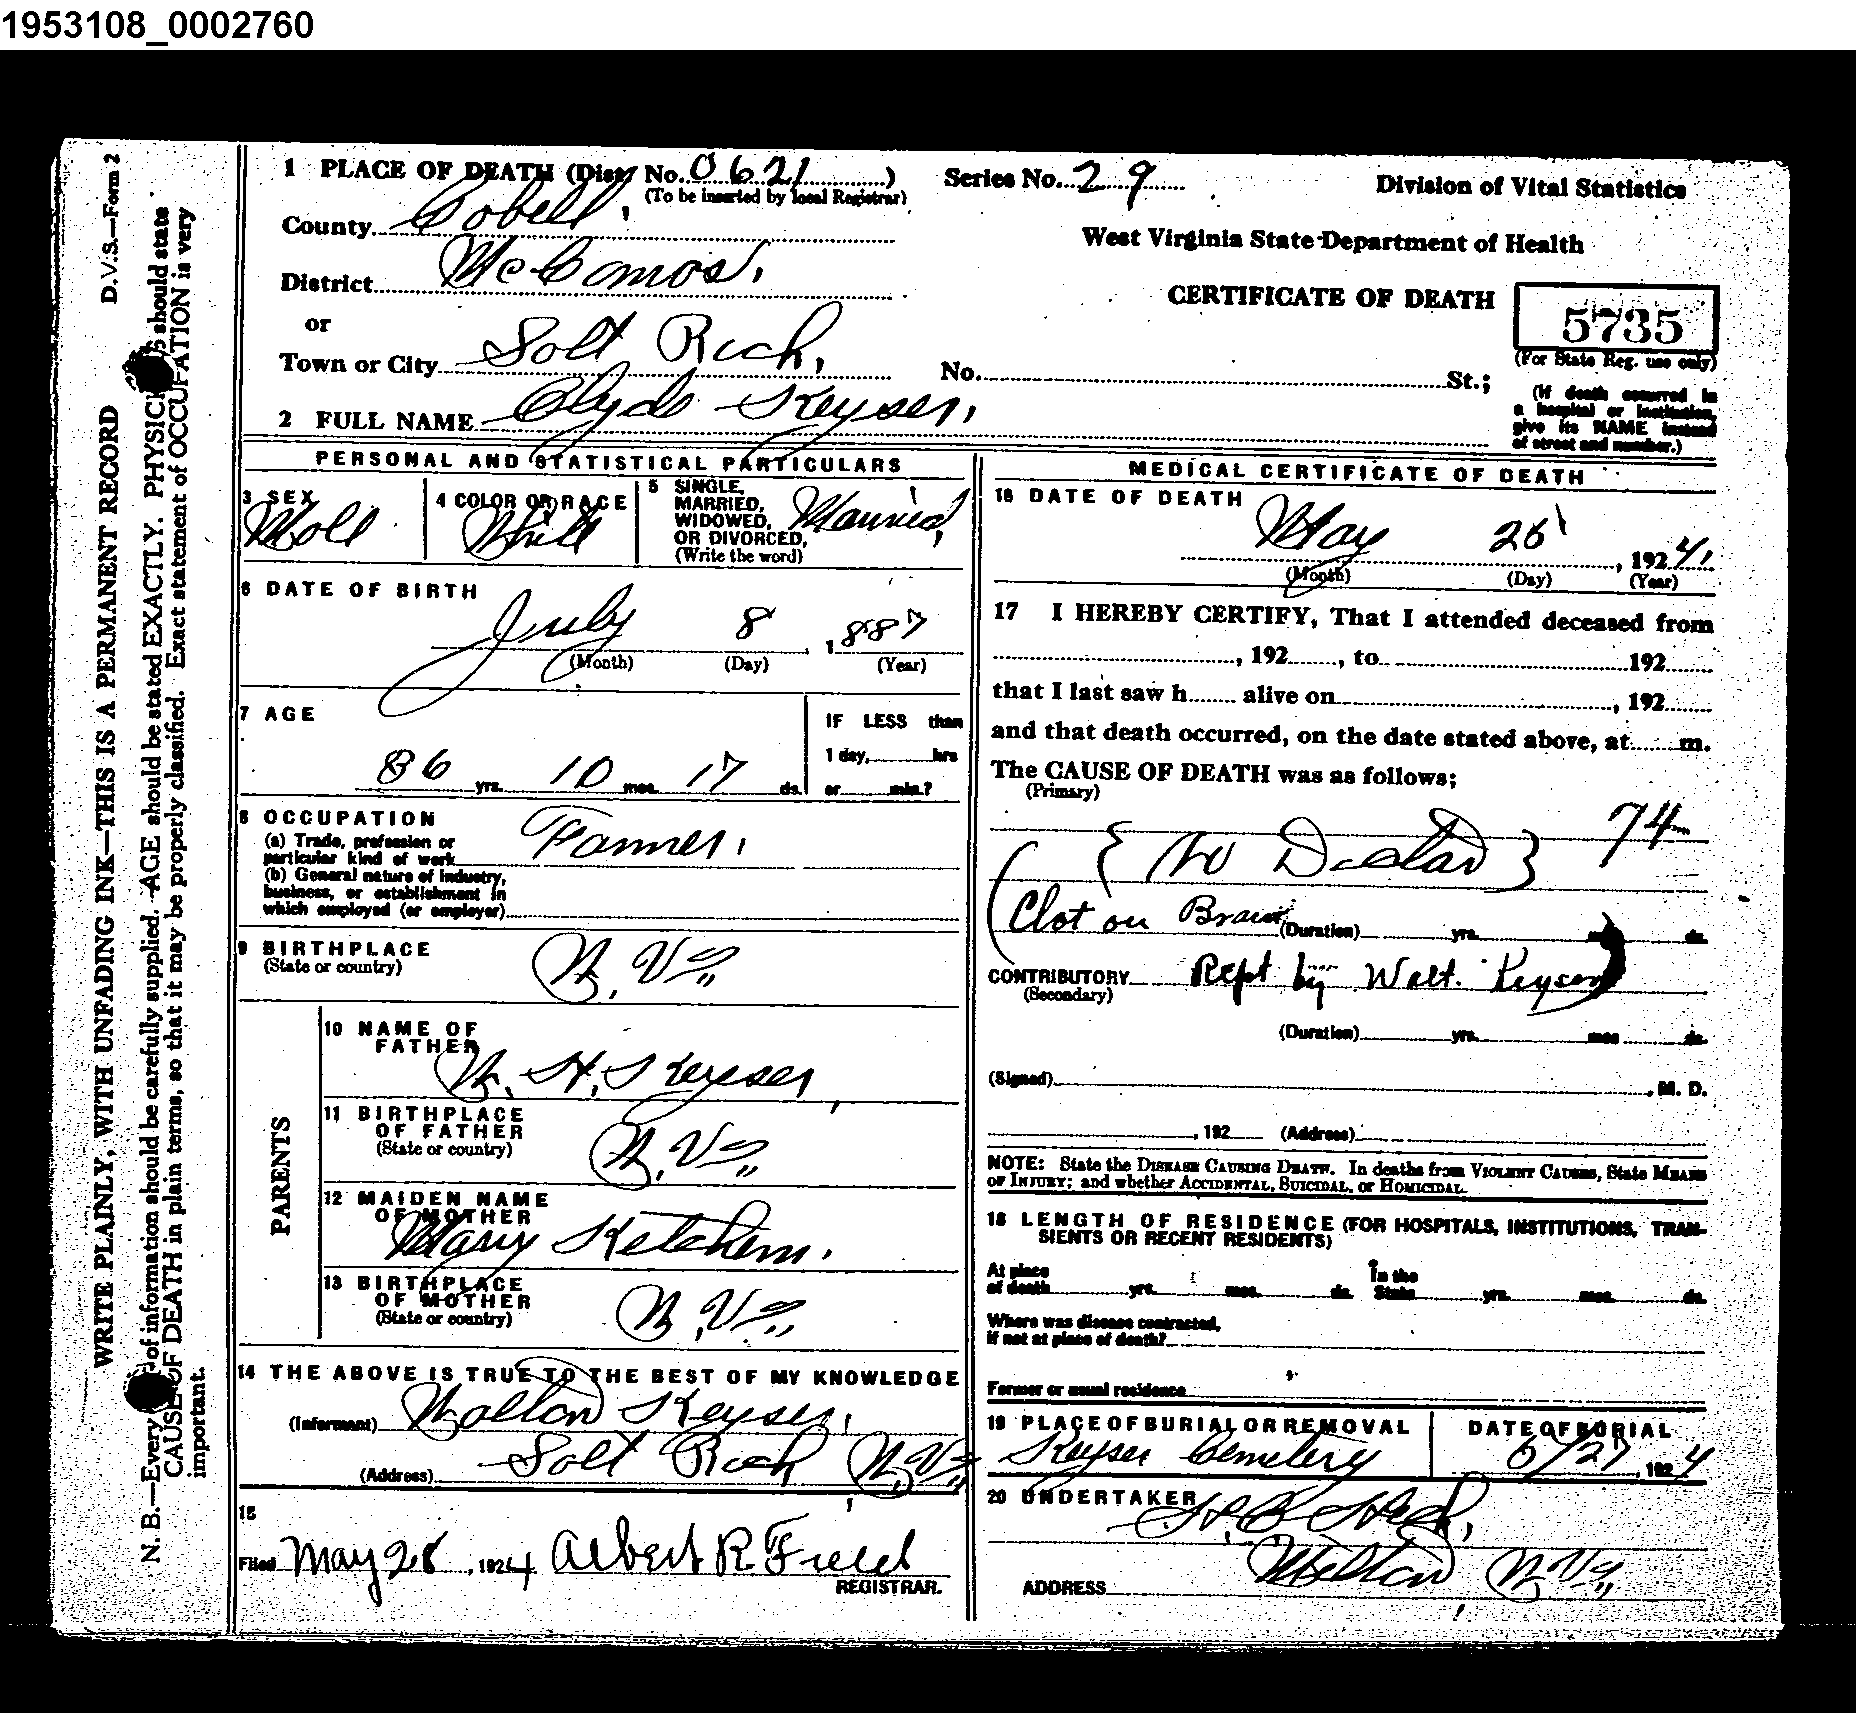 1953108_0002760
D.V.S.—Form 2
WRITE PLAINLY, WITH UNFADING INK—THIS IS A PERMANENT RECORD
N. B.—Every of information should be carefully supplied. AGE should be stated EXACTLY. PHYSICI S should state
CAUSE OF DEATH in plain terms, so that it may be properly classified. Exact statement of OCCUPATION is very
important.
1 PLACE OF DEATH (Dist. No. 0621) Series No. 29 Division of Vital Statistics
(To be inserted by local Registrar)
County Cobell,
West Virginia State Department of Health
District McComos,
CERTIFICATE OF DEATH 5735
or
(For State Reg. use only)
Town or City Solt Rock, No. St.;
(If death occurred in
a hospital or institution,
give its NAME instead
of street and number.)
2 FULL NAME Clyde Keyser,
PERSONAL AND STATISTICAL PARTICULARS
3 SEX
Moll
4 COLOR OR RACE
Whill
5 SINGLE,
MARRIED,
WIDOWED,
OR DIVORCED,
(Write the word)
Married,
6 DATE OF BIRTH
July 8, 1887
(Month) (Day) (Year)
7 AGE
86 yrs. 10 mos. 17 ds.
IF LESS than
1 day, hrs
or min.?
8 OCCUPATION
(a) Trade, profession or
particular kind of work Farmer.
(b) General nature of industry,
business, or establishment in
which employed (or employer)
9 BIRTHPLACE
(State or country)
W. Va,,
PARENTS
10 NAME OF
FATHER
W. H. Keyser,
11 BIRTHPLACE
OF FATHER
(State or country)
W. Va,,
12 MAIDEN NAME
OF MOTHER
Mary Ketchem.
13 BIRTHPLACE
OF MOTHER
(State or country)
W. Va,,
14 THE ABOVE IS TRUE TO THE BEST OF MY KNOWLEDGE
(Informant) Walton Keyser,
(Address) Solt Rock W. Va,,
15
Filed May 28, 1924 Albert R Field
REGISTRAR.
MEDICAL CERTIFICATE OF DEATH
16 DATE OF DEATH
May 25, 1924.
(Month) (Day) (Year)
17 I HEREBY CERTIFY, That I attended deceased from
, 192 , to 192
that I last saw h alive on , 192
and that death occurred, on the date stated above, at m.
The CAUSE OF DEATH was as follows:
(Primary)
74
{ No Doctor }
(Clot on Brain (Duration) yrs. mos. ds.
CONTRIBUTORY Rept by Walt. Keyser)
(Secondary)
(Duration) yrs. mos. ds.
(Signed) , M. D.
, 192 (Address)
NOTE: State the DISEASE CAUSING DEATH. In deaths from VIOLENT CAUSES, State MEANS
OF INJURY; and whether ACCIDENTAL, SUICIDAL, or HOMICIDAL.
18 LENGTH OF RESIDENCE (FOR HOSPITALS, INSTITUTIONS, TRAN-
SIENTS OR RECENT RESIDENTS)
At place In the
of death yrs. mos. ds. State yrs. mos. ds.
Where was disease contracted,
if not at place of death?
Former or usual residence
19 PLACE OF BURIAL OR REMOVAL
Keyser Cemetery
DATE OF BURIAL
5/27, 1924
20 UNDERTAKER
ADDRESS Milton W. Va,,